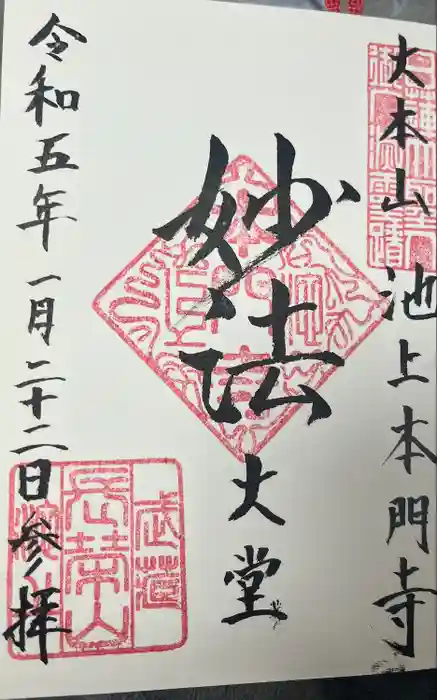 大本山 池上本門寺
妙法
大堂
令和五年一月二十二日参拝